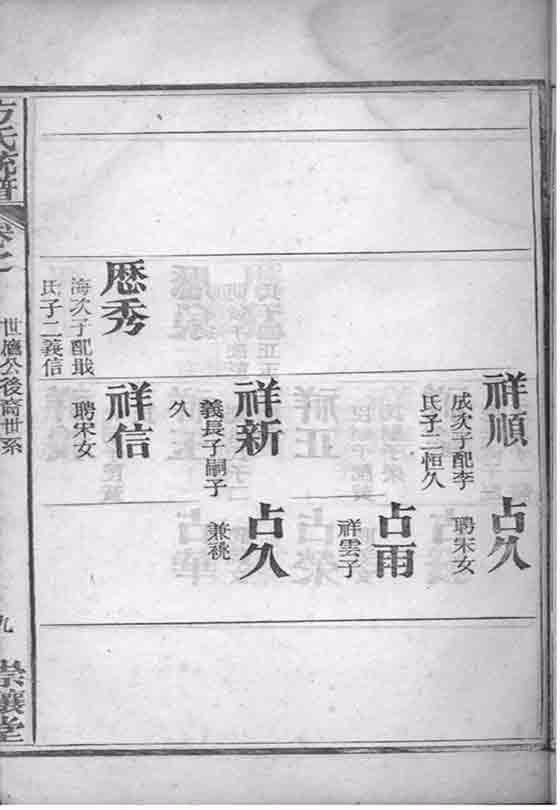 厯秀
海次子配戢
氏子二義信
祥順
成次子配李
氏子二恒久
祥新
義長子嗣子
久
祥信
聘宋女
占久
聘宋女
占雨
祥雲子
占久
兼祧
方氏統譜
卷之
公後裔世系
九
崇讓堂